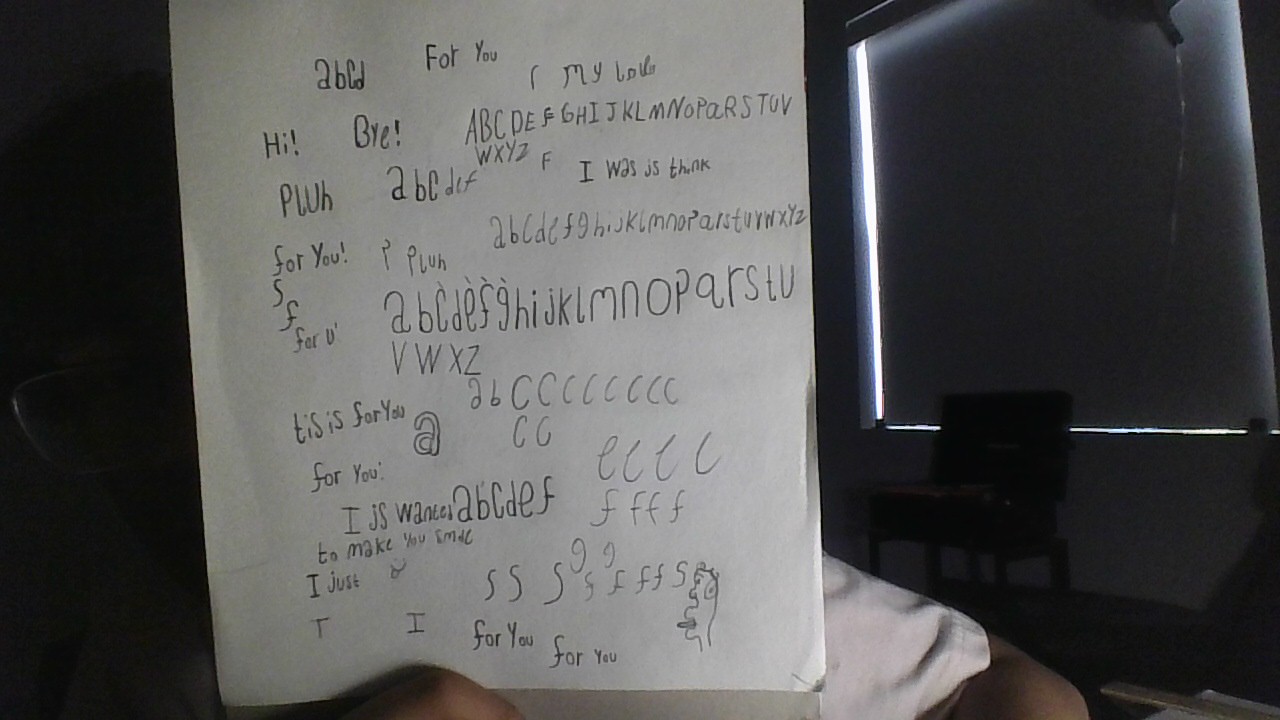 abcd
For You
my
Hi!
Bye!
ABCDEFGHIJKLMNOPQRSTUV
WXYZ F
PLUh
abcdef
I was is think
for You!
P PLUh
abcdefghijklmnopqrstuvwxyz
S
f
for U
abcdefghijklmnopqrstu
VWXZ
abCCCCCCCC
tis is for You
a
CC
for You!
eeee
I js abcdef
ffff
to make You smile
I just
gg
SSSsffffS
T I
for You
for You